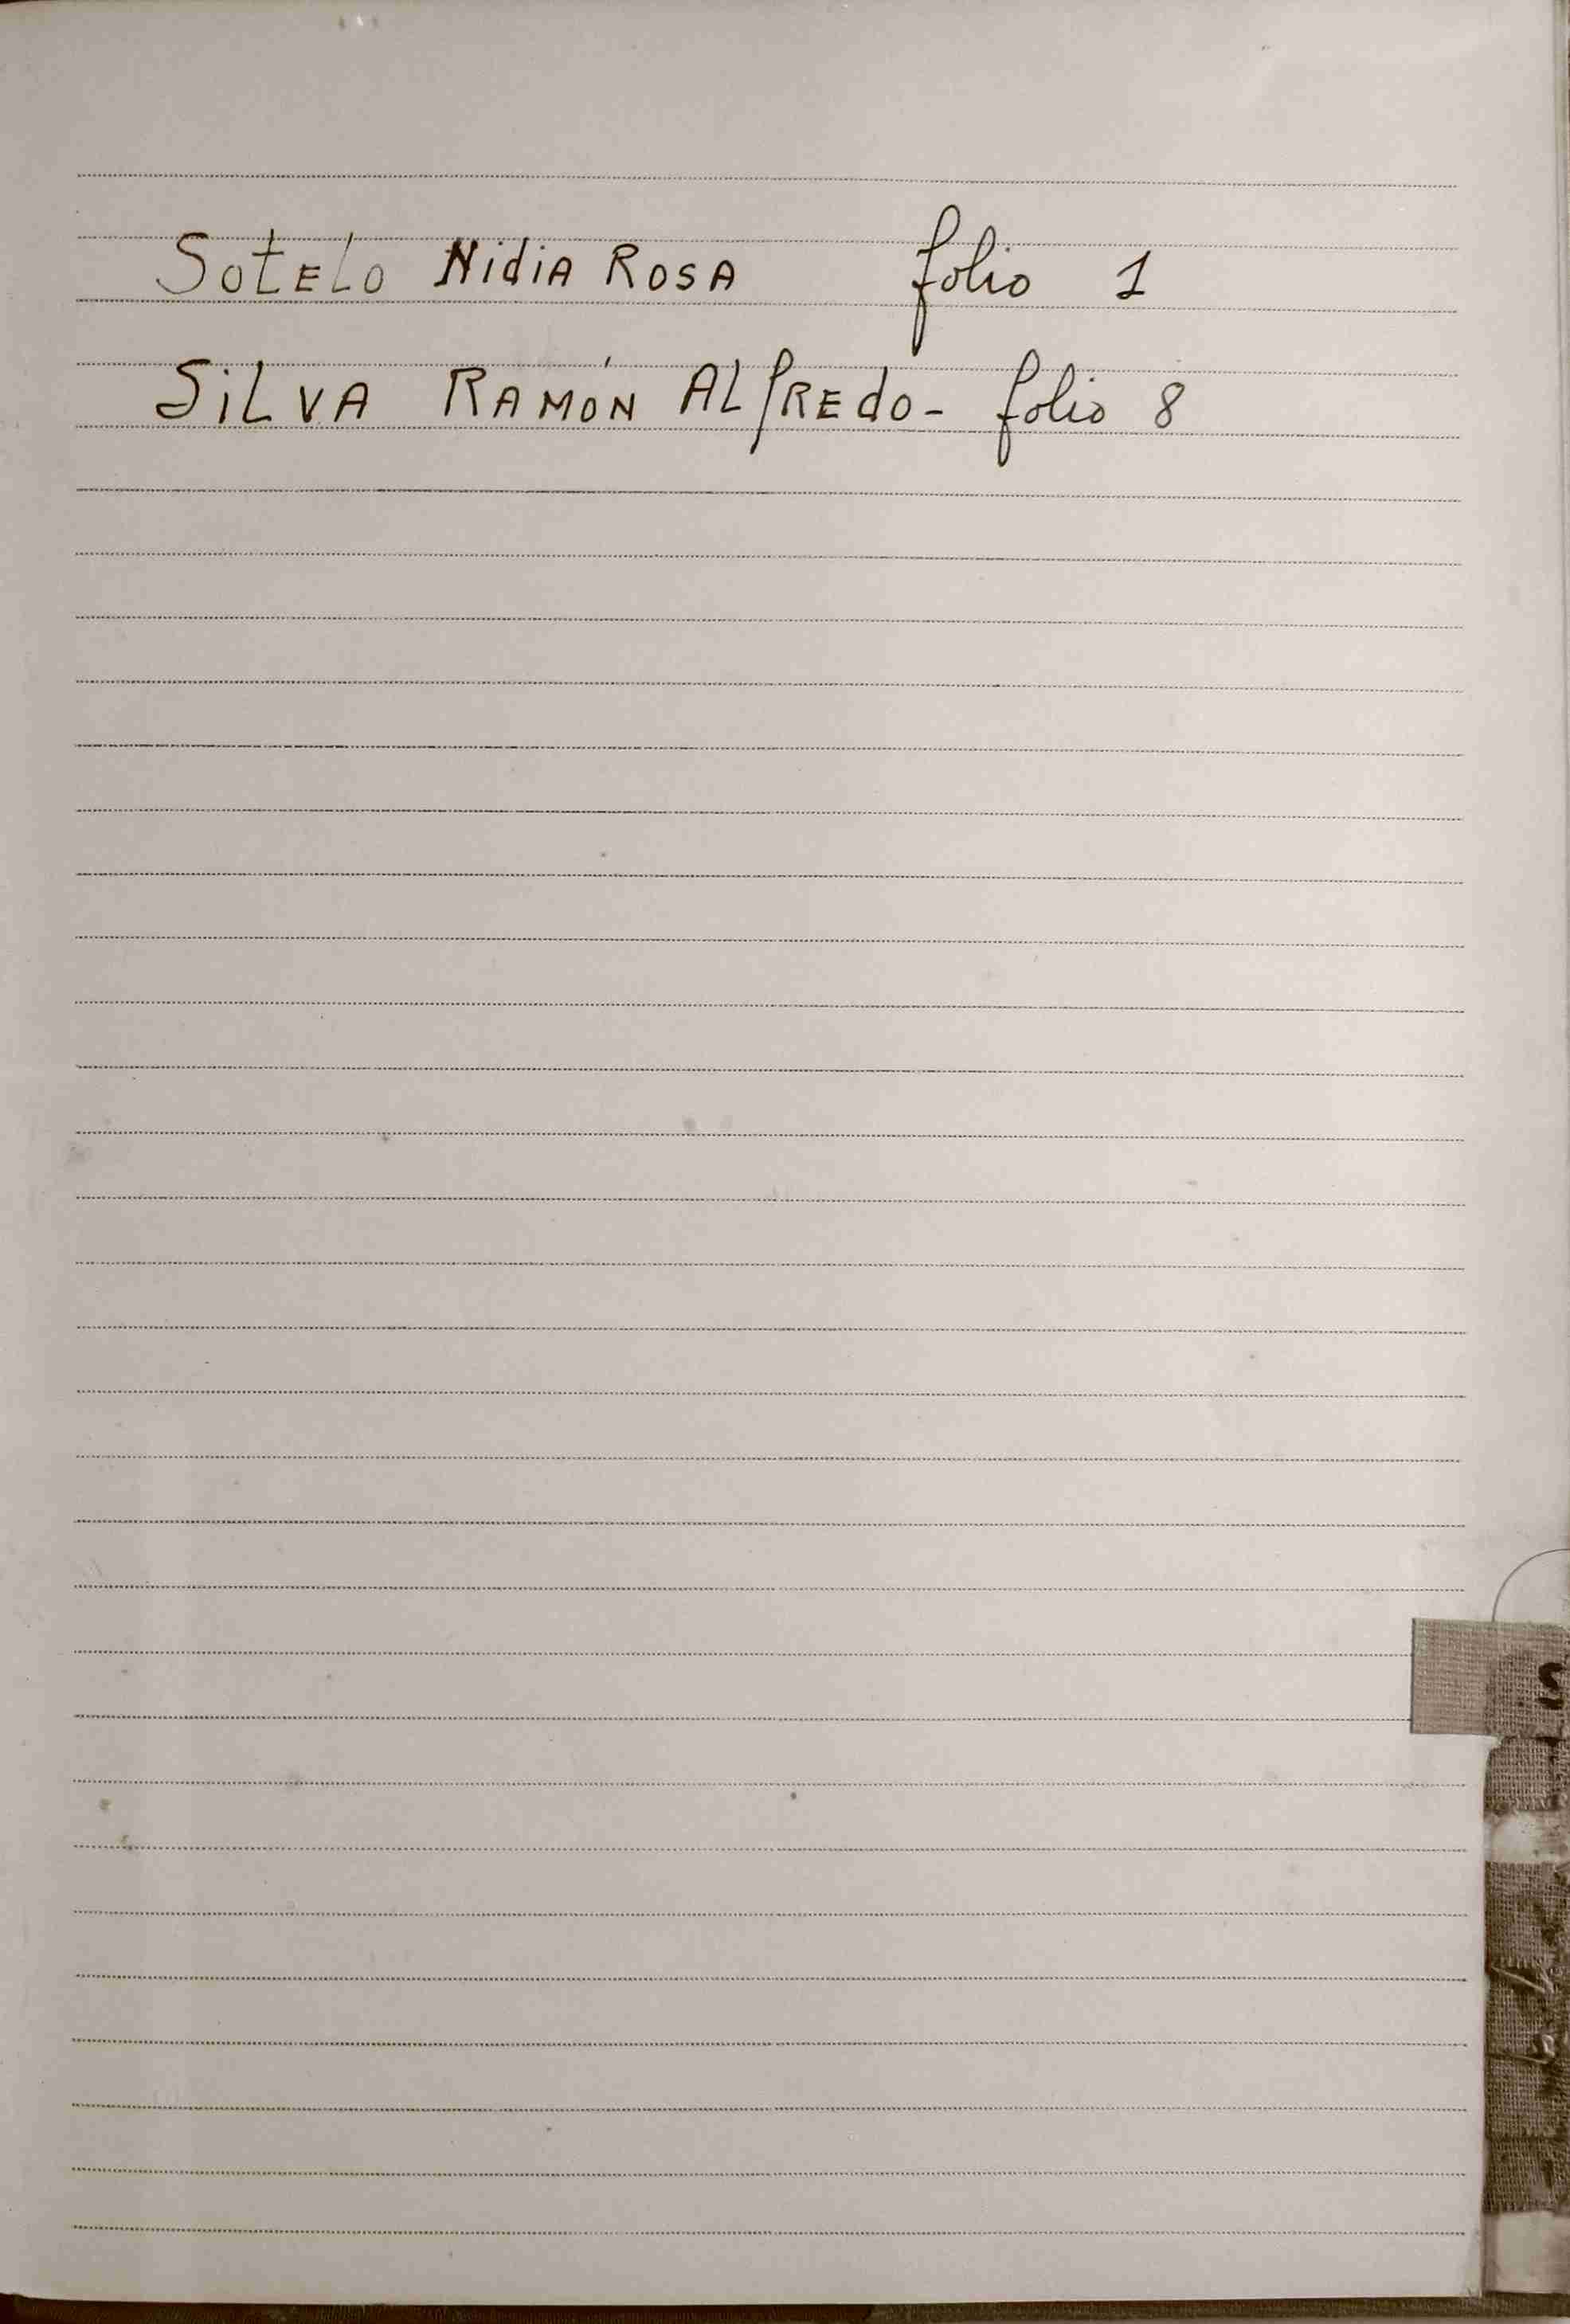 Sotelo Nidia Rosa folio 1
Silva Ramón Alfredo - folio 8
S